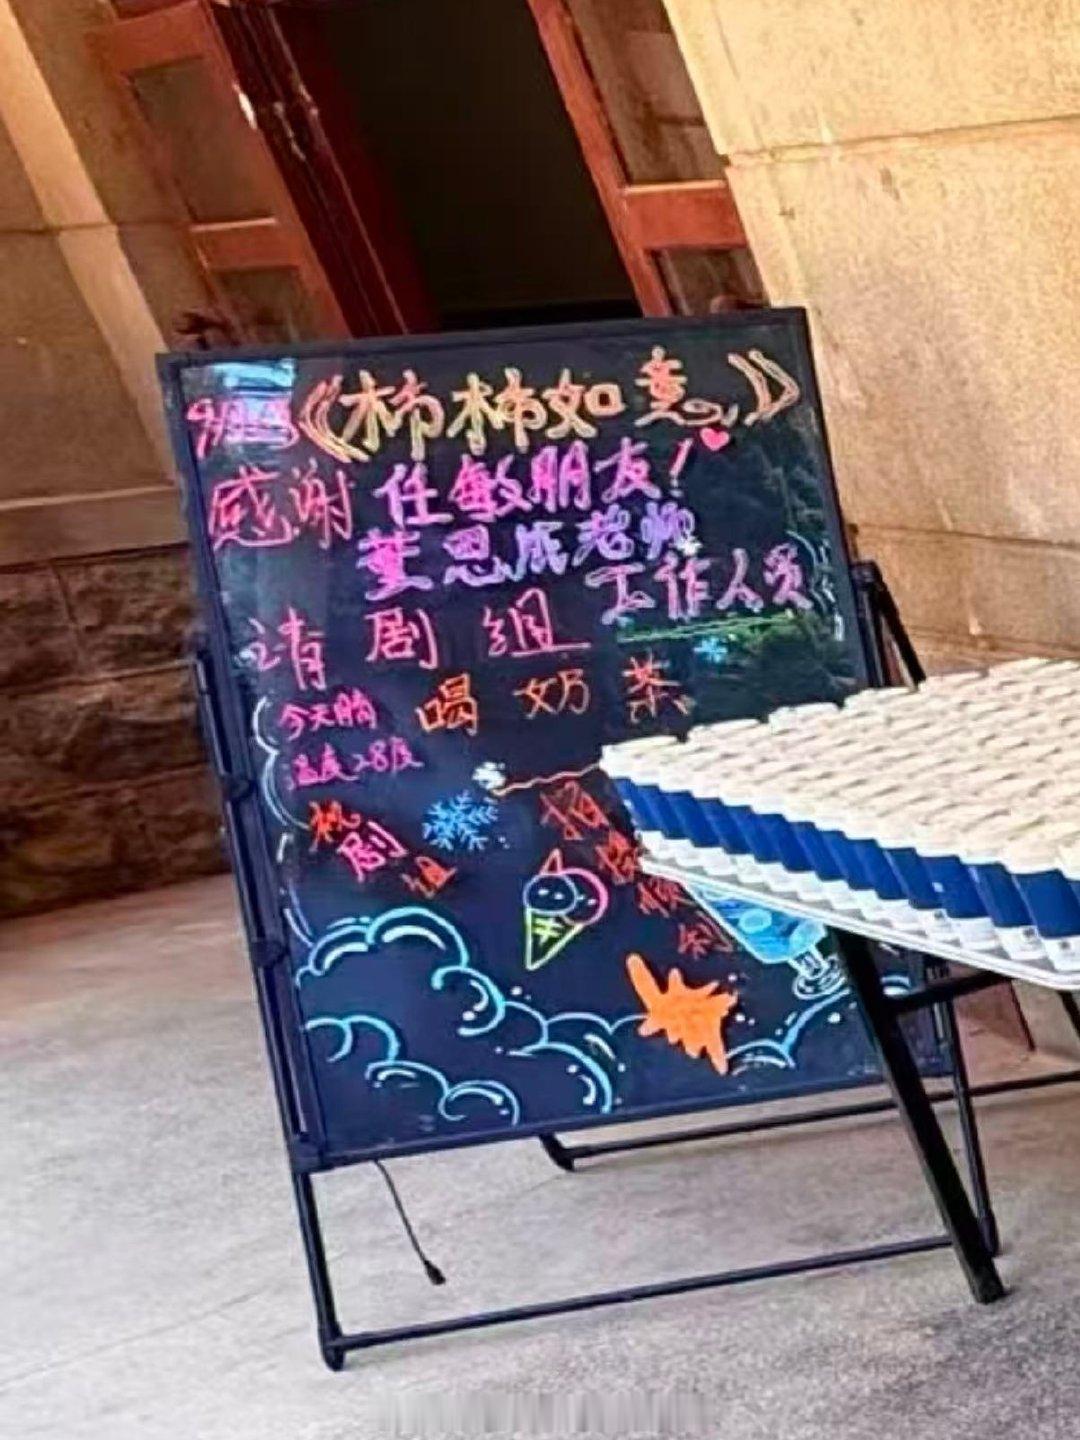 《柿柿如意》
感谢 任敏朋友！
老师
工作人员
请 剧 组
喝 奶 茶
今天
温度28度
祝
剧
组
拍
摄
顺
利